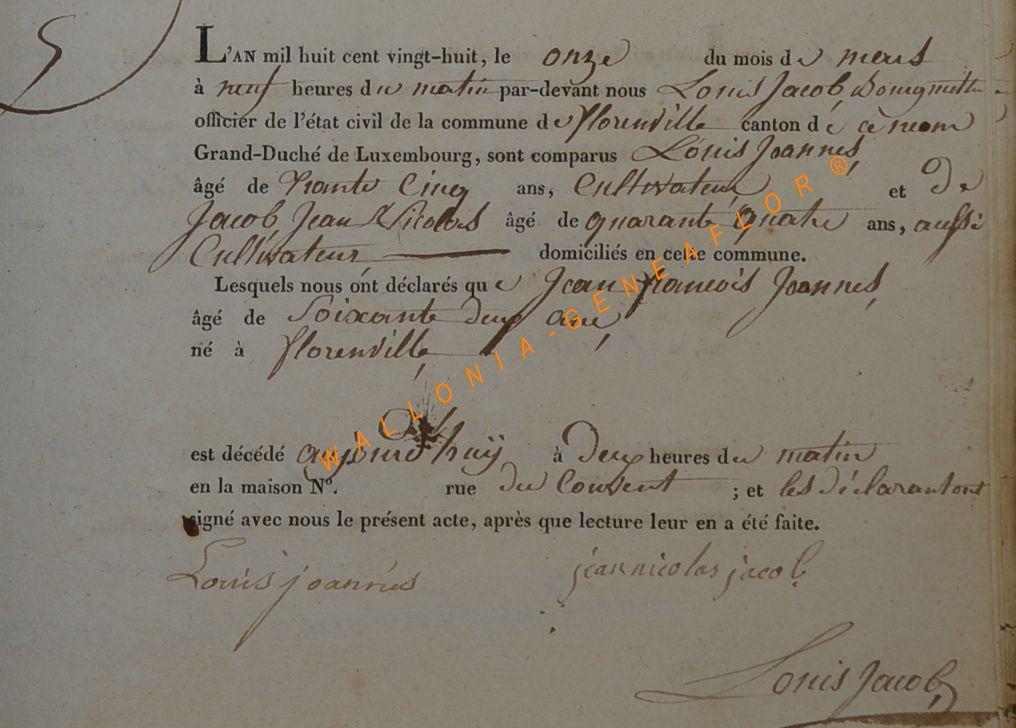 5
L'AN mil huit cent vingt-huit, le onze du mois de mars
à neuf heures du matin par-devant nous Louis Jacob, Bourgmettre
officier de l'état civil de la commune de florenville canton de ce nom
Grand-Duché de Luxembourg, sont comparus Louis Joannes,
âgé de trante Cinq ans, Cultivateur et de
Jacob, Jean Nicolas âgé de quarante quatre ans, aussi
Cultivateur domiciliés en cette commune.
Lesquels nous ont déclarés que Jean francois Joannes,
âgé de Soixante deux ans,
né à florenville,
est décédé aujourd'huÿ à deux heures du matin
en la maison N°. rue du Couvent ; et les déclarant ont
signé avec nous le présent acte, après que lecture leur en a été faite.
Louis joannes jean nicolas jacob
Louis Jacob,
WALLONIA-GENEAFLOR ®